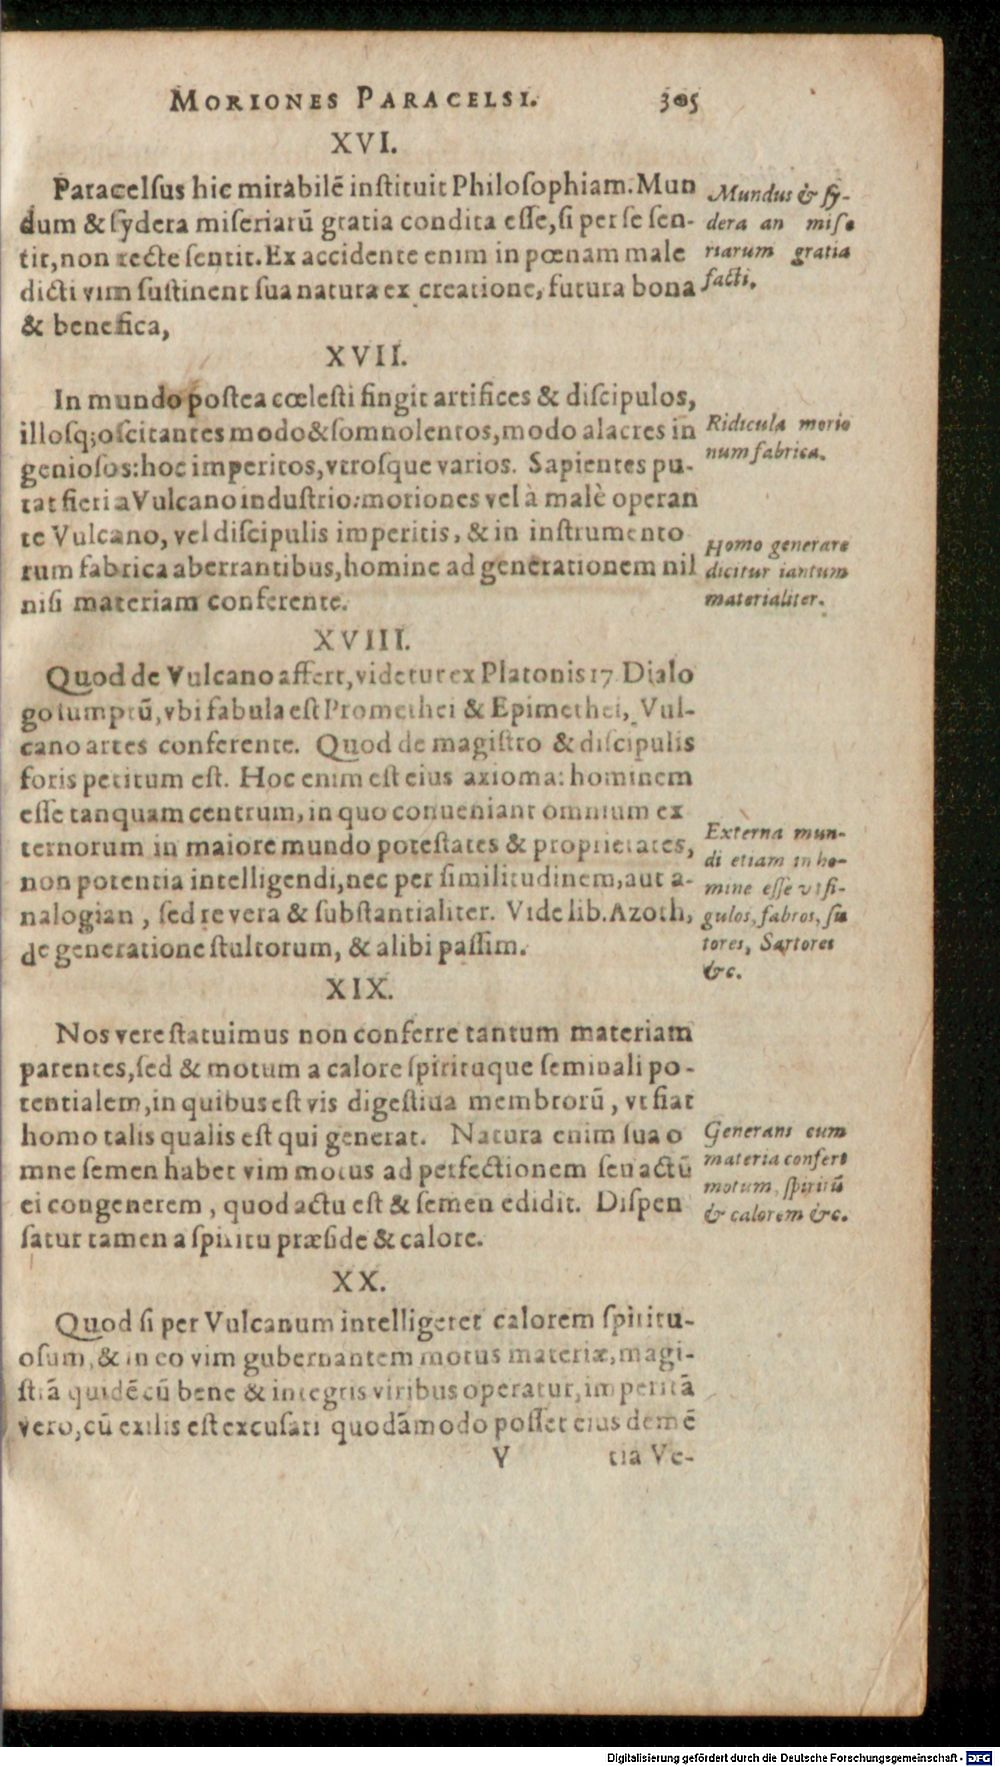 MORIONES PARACELSI. 305
XVI.
Paracelſus hic mirabilē inſtituit Philoſophiam. Mun
dum & ſydera miſeriarū gratia condita eſſe, ſi per ſe ſen-
tit, non recte ſentit. Ex accidente enim in pœnam male
dicti vim ſuſtinent ſua natura ex creatione, futura bona
& benefica,
Mundus & ſy-
dera an miſe
riarum gratia
facti.
XVII.
In mundo poſtea cœleſti fingit artifices & diſcipulos,
illoſq; oſcitantes modo & ſomnolentos, modo alacres in
genioſos: hoc imperitos, vtroſque varios. Sapientes pu-
tat fieri a Vulcano induſtrio: moriones vel à malè operan
te Vulcano, vel diſcipulis imperitis, & in inſtrumento
rum fabrica aberrantibus, homine ad generationem nil
niſi materiam conferente.
Ridicula morio
num fabrica.
Homo generare
dicitur tantum
materialiter.
XVIII.
Quod de Vulcano affert, videtur ex Platonis 17 Dialo
go ſumptū, vbi fabula eſt Promethei & Epimethei, Vul-
cano artes conferente. Quod de magiſtro & diſcipulis
foris petitum eſt. Hoc enim eſt eius axioma: hominem
eſſe tanquam centrum, in quo conueniant omnium ex
ternorum in maiore mundo poteſtates & proprietates,
non potentia intelligendi, nec per ſimilitudinem, aut a-
nalogian, ſed re vera & ſubſtantialiter. Vide lib. Azoth,
de generatione ſtultorum, & alibi paſſim.
Externa mun-
di etiam in ho-
mine eſſe vt fi-
gulos, fabros, ſu
tores, Sartores
&c.
XIX.
Nos vere ſtatuimus non conferre tantum materiam
parentes, ſed & motum a calore ſpirituque ſeminali po-
tentialem, in quibus eſt vis digeſtiua membrorū, vt fiat
homo talis qualis eſt qui generat. Natura enim ſua o
mne ſemen habet vim motus ad perfectionem ſeu actū
ei congenerem, quod actu eſt & ſemen edidit. Diſpen
ſatur tamen a ſpiritu præſide & calore.
Generans cum
materia confert
motum, ſpiritū
& calorem &c.
XX.
Quod ſi per Vulcanum intelligeret calorem ſpiritu-
oſum, & in eo vim gubernantem motus materiæ, magi-
ſtrā quidē cū bene & integris viribus operatur, imperitā
vero, cū exilis eſt excuſari quodāmodo poſſet eius demē
Y tia Ve-
Digitalisierung gefördert durch die Deutsche Forschungsgemeinschaft - DFG